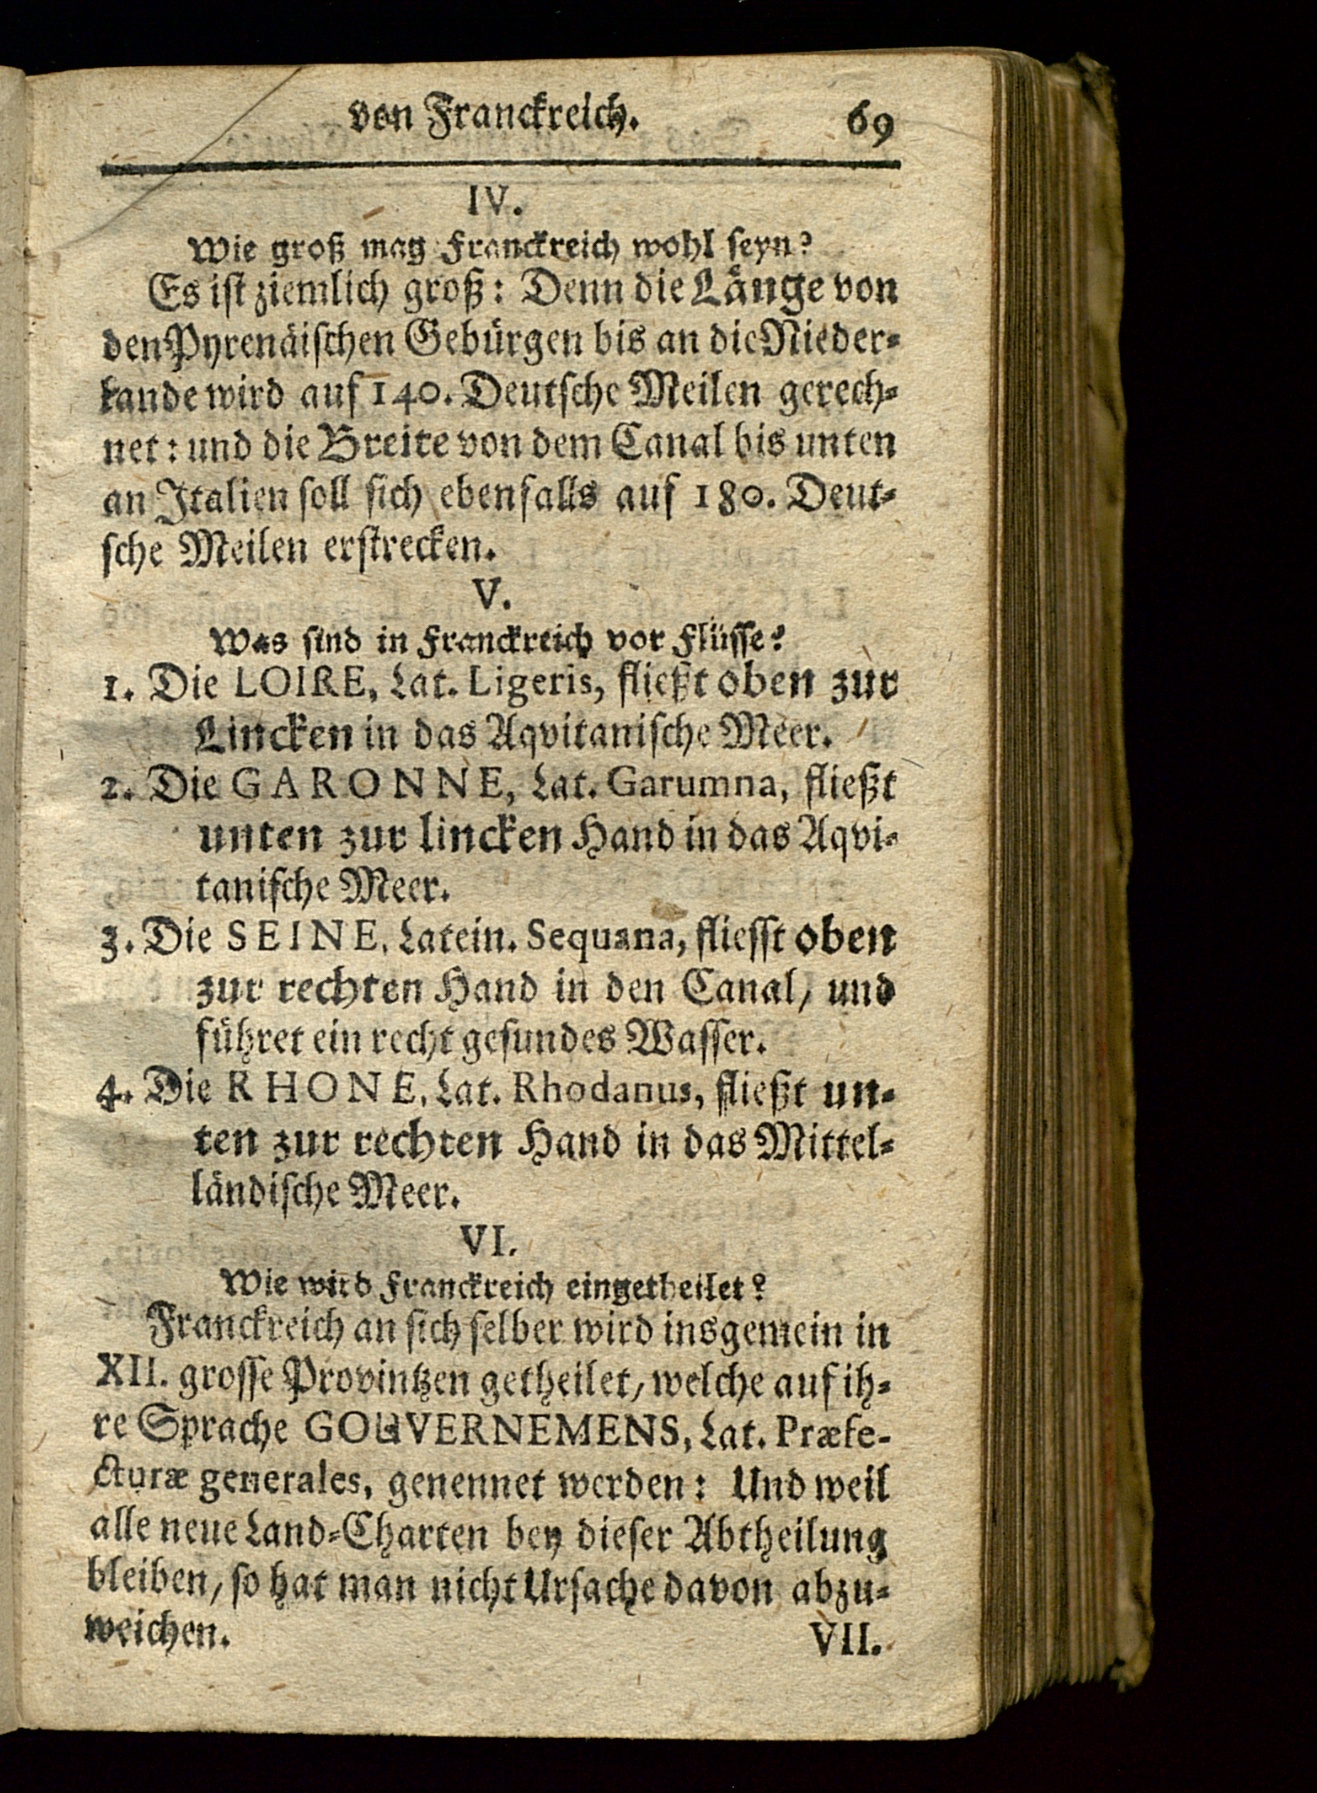 von Franckreich. 69
IV.
Wie groß mag Franckreich wohl seyn?
Es ist ziemlich groß: Denn die Länge von
den Pyrenäischen Gebürgen bis an die Nieder-
lande wird auf 140. Deutsche Meilen gerech-
net: und die Breite von dem Canal bis unten
an Italien soll sich ebenfalls auf 180. Deut-
sche Meilen erstrecken.
V.
Was sind in Franckreich vor Flüsse?
1. Die LOIRE, Lat. Ligeris, fließt oben zur
Lincken in das Aqvitanische Meer.
2. Die GARONNE, Lat. Garumna, fließt
unten zur lincken Hand in das Aqvi-
tanische Meer.
3. Die SEINE, Latein. Sequana, fliesst oben
zur rechten Hand in den Canal, und
führet ein recht gesundes Wasser.
4. Die RHONE, Lat. Rhodanus, fließt un-
ten zur rechten Hand in das Mittel-
ländische Meer.
VI.
Wie wird Franckreich eingetheilet?
Franckreich an sich selber wird insgemein in
XII. grosse Provintzen getheilet, welche auf ih-
re Sprache GOUVERNEMENS, Lat. Præfe-
cturæ generales, genennet werden: Und weil
alle neue Land-Charten bey dieser Abtheilung
bleiben, so hat man nicht Ursache davon abzu-
weichen. VII.